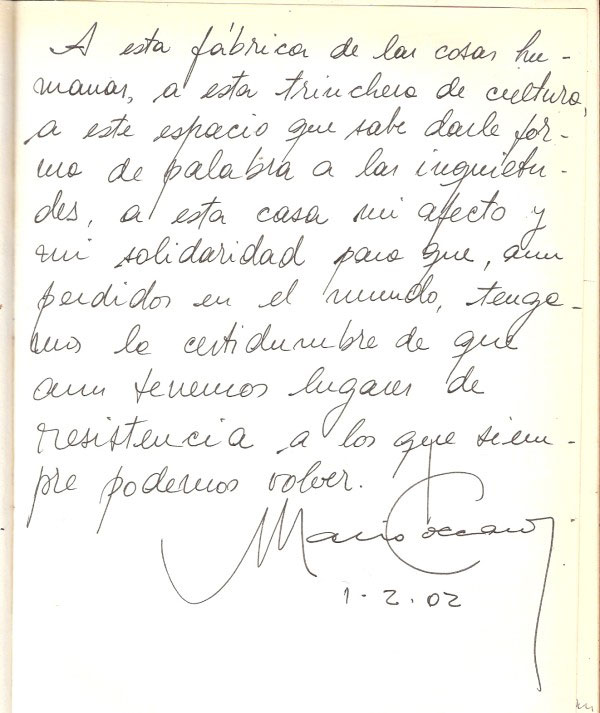 A esta fábrica de las cosas hu-
manas, a esta trinchera de cultura,
a este espacio que sabe darle for-
ma de palabra a las inquietu-
des, a esta casa mi afecto y
mi solidaridad para que, aun
perdidos en el mundo, tenga-
mos la certidumbre de que
aun tenemos lugares de
resistencia a los que siem-
pre podemos volver.
Mario
1-2-02